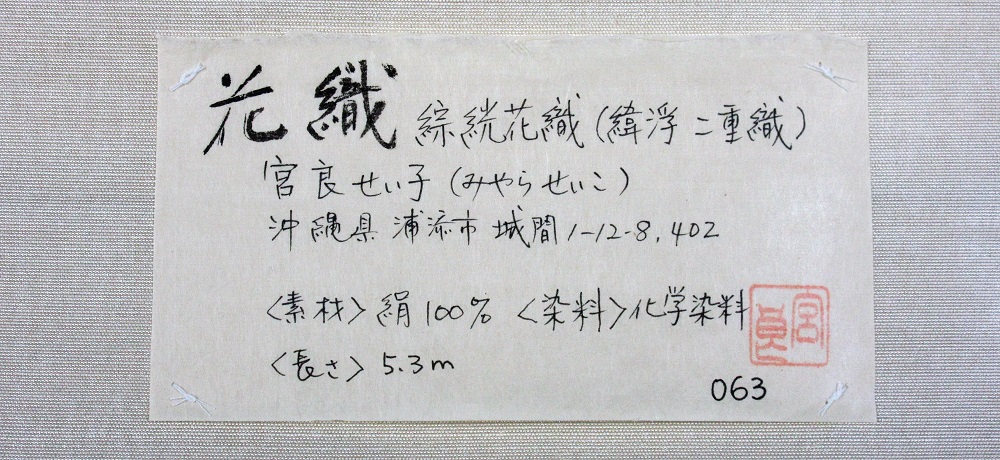 花織 綜絖花織(緯浮二重織)
宮良せい子(みやらせいこ)
沖縄県浦添市城間1-12-8,402
〈素材〉絹100% 〈染料〉化学染料
〈長さ〉5.3m
宮良
063